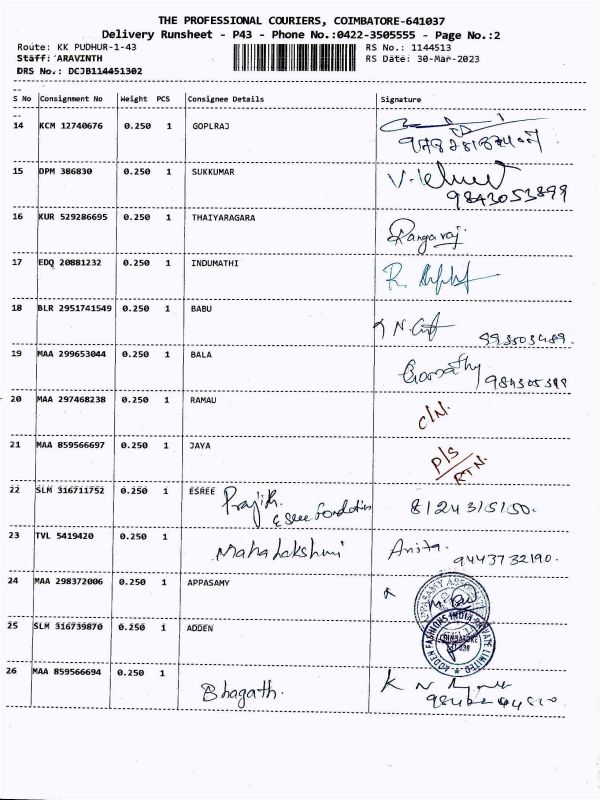 THE PROFESSIONAL COURIERS, COIMBATORE-641037
Delivery Runsheet - P43 - Phone No.:0422-3505555 - Page No.:2
Route: KK PUDHUR-1-43 RS No.: 1144513
Staff: ARAVINTH RS Date: 30-Mar-2023
DRS No.: DCJB114451302
S No Consignment No Weight PCS Consignee Details Signature
14 KCM 12740676 0.250 1 GOPLRAJ
15 DPM 386830 0.250 1 SUKKUMAR
9843053899
16 KUR 529286695 0.250 1 THAIYARAGARA Rangaraj
17 EDQ 20881232 0.250 1 INDUMATHI R.
18 BLR 2951741549 0.250 1 BABU
19 MAA 299653044 0.250 1 BALA
20 MAA 297468238 0.250 1 RAMAU C/N.
21 MAA 859566697 0.250 1 JAYA P/S
RTN.
22 SLM 316711752 0.250 1 ESREE 8124315150.
23 TVL 5419420 0.250 1 Mahalakshmi Anita.
9443732190.
24 MAA 298372006 0.250 1 APPASAMY
25 SLM 316739870 0.250 1 ADDEN ADDEN FASHIONS INDIA PRIVATE LIMITED
COIMBATORE
26 MAA 859566694 0.250 1 Bhagath. K N